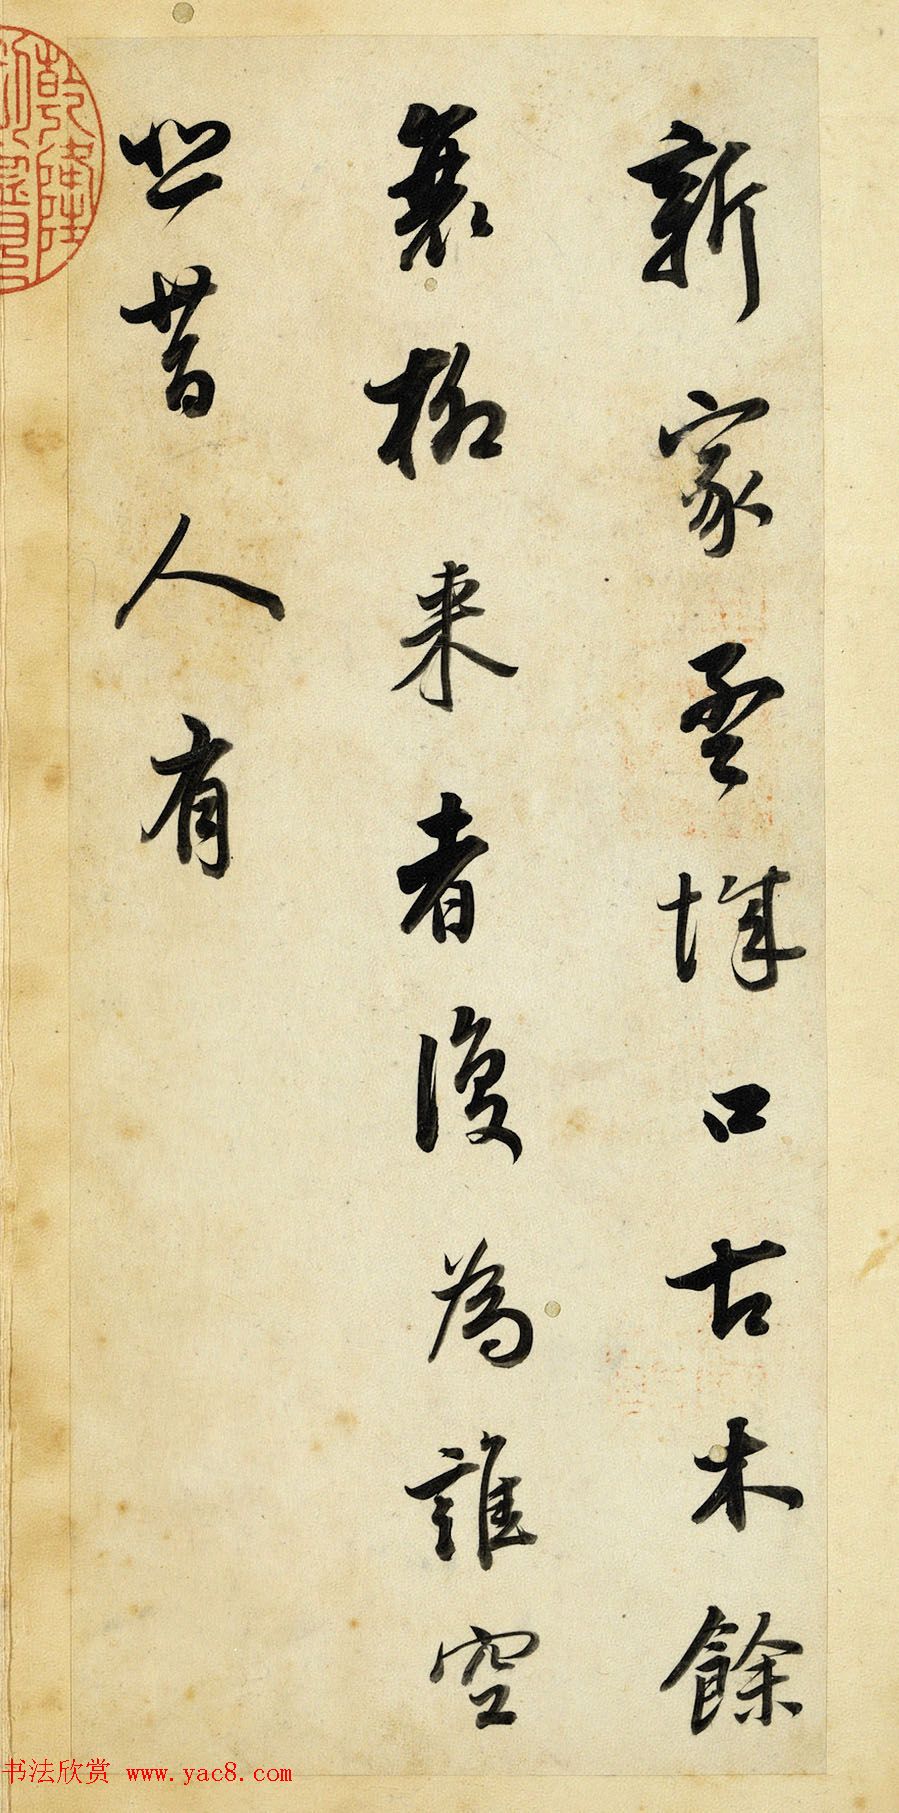 新家孟城口古木餘
衰柳来者復為誰空
悲昔人有
乾隆
书法欣赏 www.yac8.com